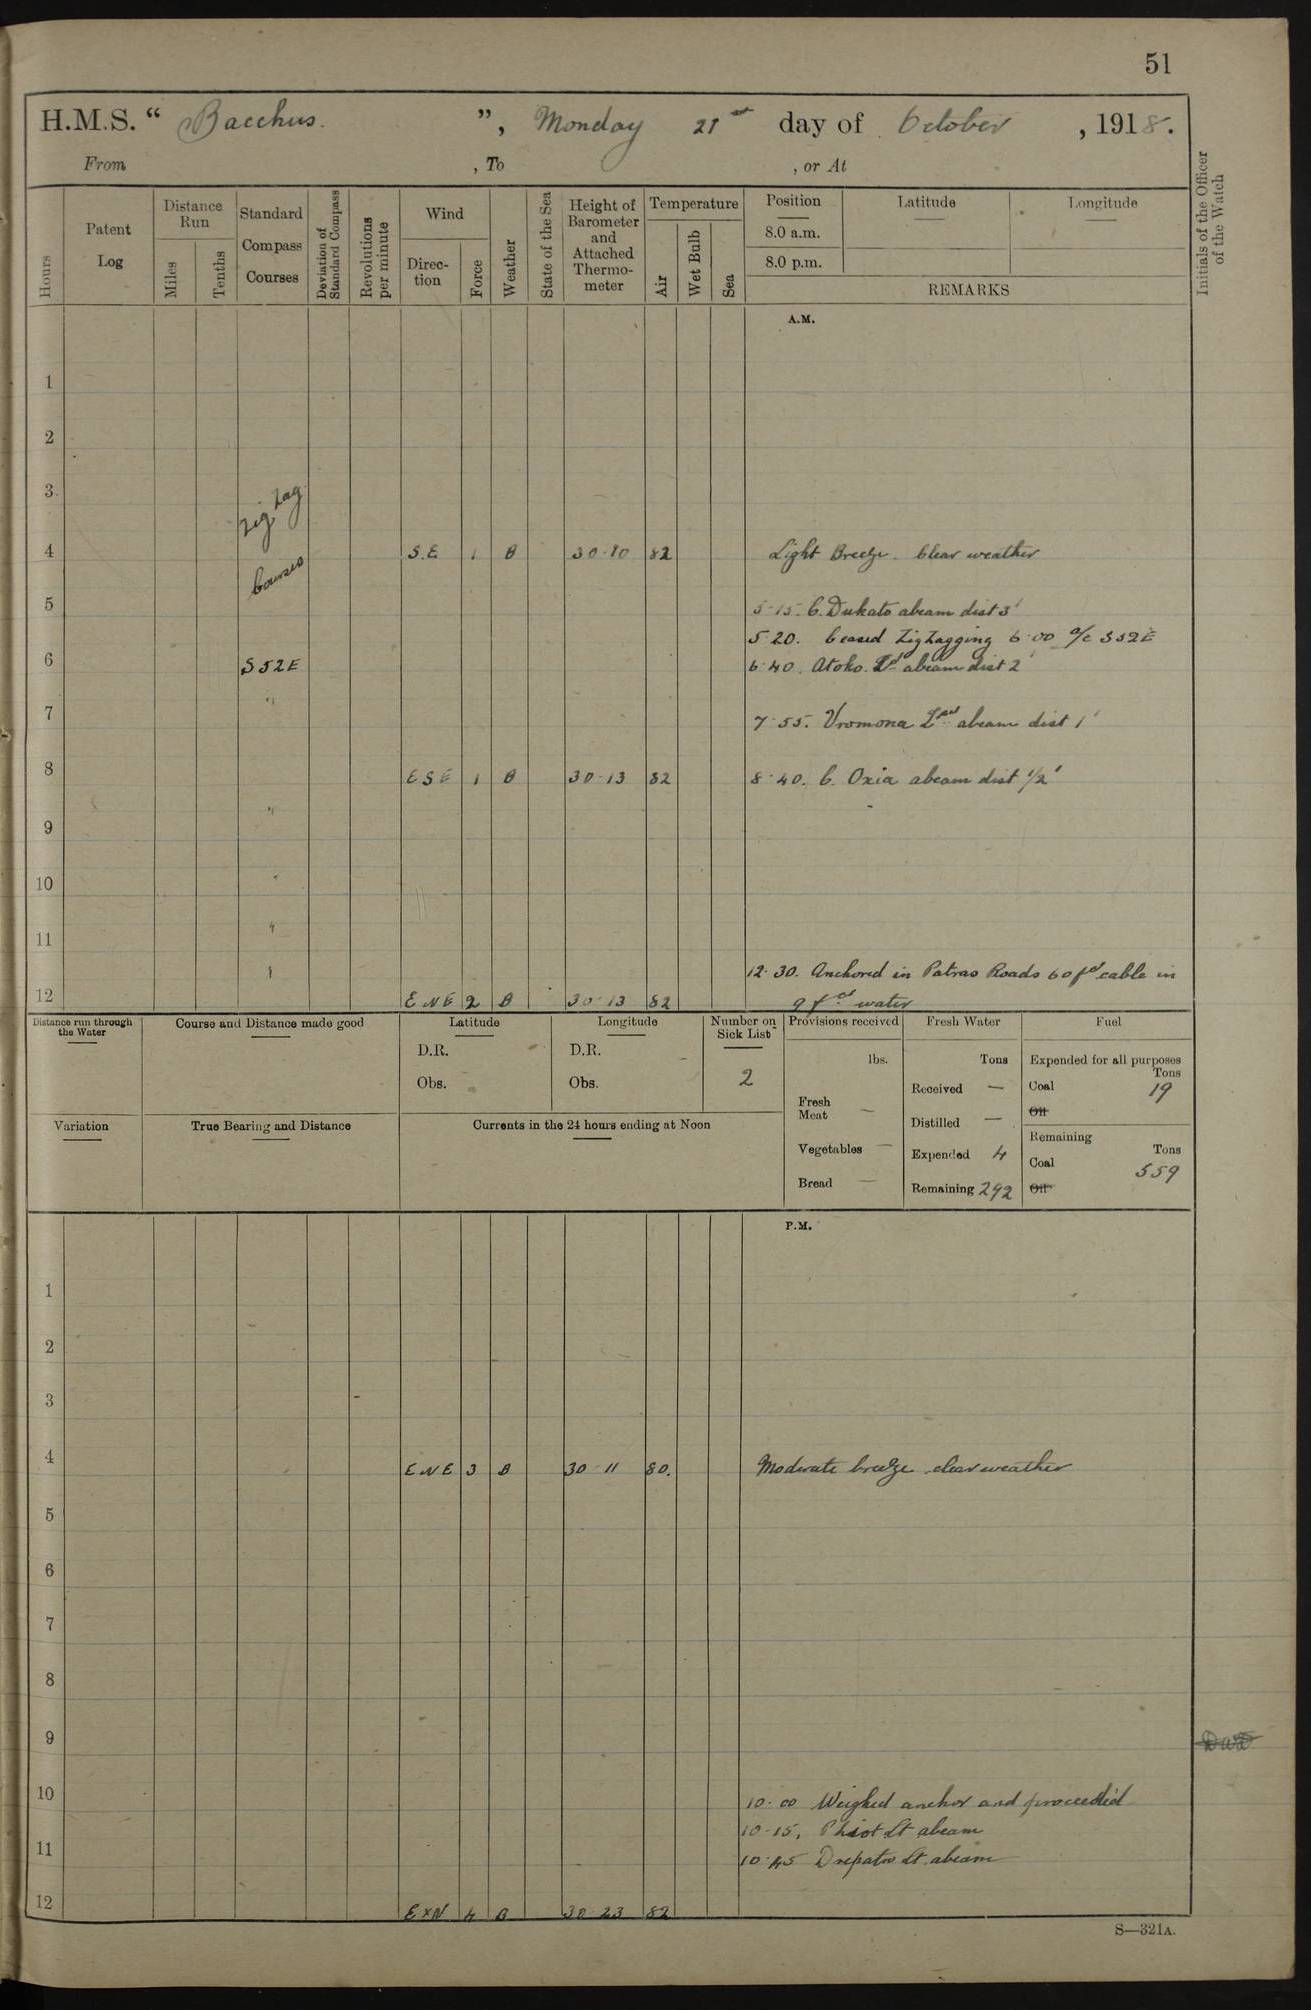 51
H.M.S. “ Bacchus. ”, Monday 21st day of October , 1918.
From , To , or At
Hours
Patent Log
Distance Run
Miles
Tenths
Standard Compass Courses
Deviation of Standard Compass
Revolutions per minute
Wind
Direction
Force
Weather
State of the Sea
Height of Barometer and Attached Thermometer
Temperature
Air
Wet Bulb
Sea
Position
8.0 a.m.
8.0 p.m.
Latitude
Longitude
REMARKS
Initials of the Officer of the Watch
A.M.
1
2
3 Zig Zag
4 Courses S.E 1 B 30·10 82 Light Breeze. Clear weather
5 5·15. C. Dukato abeam dist 3'
5·20. Ceased ZigZagging 6·00 a/c S52E
6 S52E 6·40. Atoko Id abeam dist 2'
7 " 7·55. Vromona Id abeam dist 1'
8 ESE 1 B 30·13 82 8·40. C. Oxia abeam dist 1/2'
9 "
10 "
11 "
12·30. Anchored in Patras Roads 60 fs cable in
12 ENE 2 B 30·13 82 9 fs water
Distance run through the Water
Course and Distance made good
Latitude
D.R.
Obs.
Longitude
D.R.
Obs.
Number on Sick List
2
Provisions received
lbs.
Fresh Meat —
Vegetables —
Bread —
Fresh Water
Tons
Received —
Distilled —
Expended 4
Remaining 292
Fuel
Expended for all purposes
Tons
Coal 19
Oil
Remaining
Tons
Coal 559
Oil
Variation
True Bearing and Distance
Currents in the 24 hours ending at Noon
P.M.
1
2
3
4 ENE 3 B 30·11 80. Moderate breeze clear weather
5
6
7
8
9
10 10·00 Weighed anchor and proceeded
10·15, Lt abeam
11 10·45 Lt. abeam
12 ExN 4 B 30·23 82
S—321A.